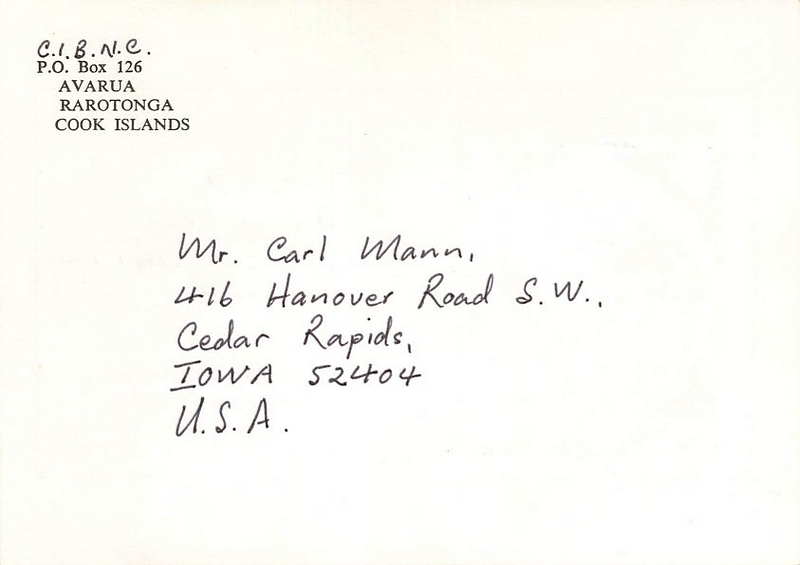 C.I.B.N.C.
P.O. Box 126
AVARUA
RAROTONGA
COOK ISLANDS
Mr. Carl Mann,
416 Hanover Road S.W.,
Cedar Rapids,
IOWA 52404
U.S.A.